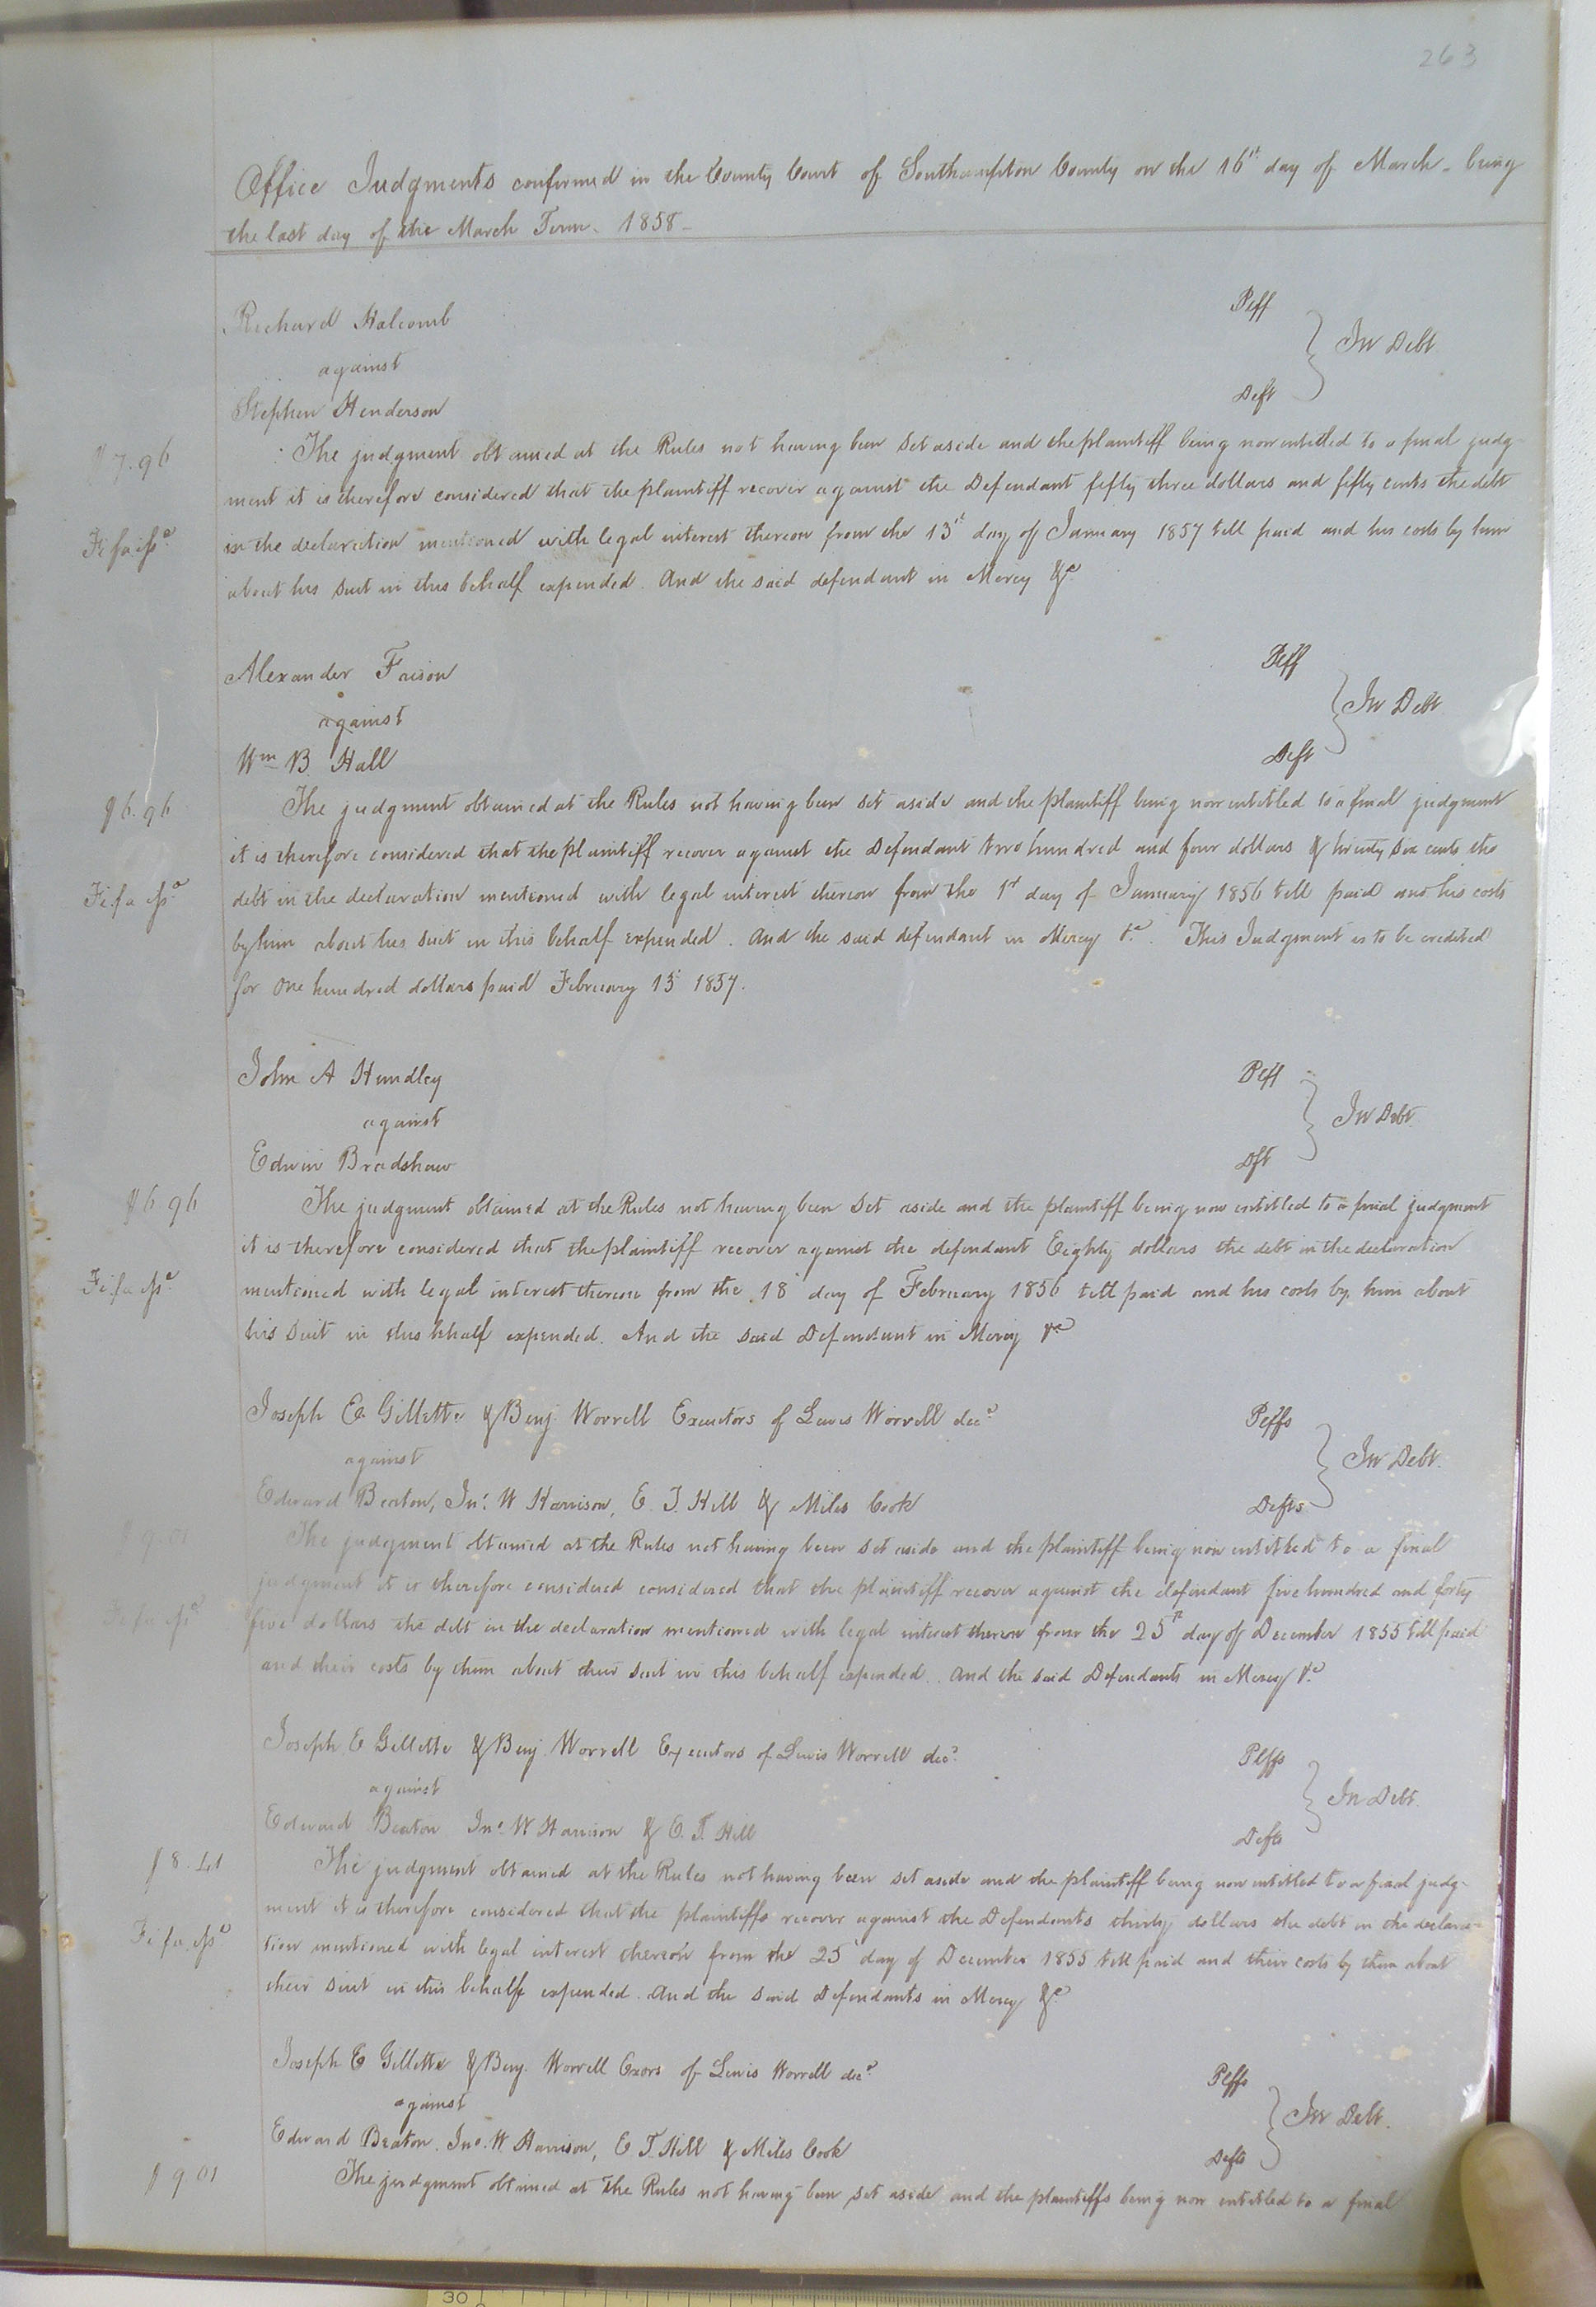 263
Office Judgments confirmed in the County Court of Southampton County on the 16th day of March - being
the last day of the March Term. 1858 -
Richard Halcomb Plff
against In Debt
Stephen Henderson Deft
$7.96 The judgment obtained at the Rules not having been set aside and the plaintiff being now entitled to a final judg-
ment it is therefore considered that the plaintiff recover against the Defendant fifty three dollars and fifty cents the debt
Fi fa iss^d in the declaration mentioned with legal interest thereon from the 13^t day of January 1857 till paid and his costs by him
about his suit in this behalf expended. And the said defendant in Mercy &^c
Alexander Faison Plff
against In Debt
W^m B Hall Deft
$6.96 The judgment obtained at the Rules not having been set aside and the plaintiff being now entitled to a final judgment
it is therefore considered that the plaintiff recover against the Defendant two hundred and four dollars & twenty six cents the
Fi.fa iss^d debt in the declaration mentioned with legal interest thereon from the 1st day of January 1856 till paid and his costs
by him about his suit in this behalf expended. And the said defendant in Mercy &c. This Judgment is to be credited
for One hundred dollars paid February 13 1857.
John A Hundley Plff
against In Debt.
Edwin Bradshaw Dft
$6 96 The judgment obtained at the Rules not having been set aside and the plaintiff being now entitled to a final judgment
it is therefore considered that the plaintiff recover against the defendant Eighty dollars the debt in the declaration
Fi.fa iss^d mentioned with legal interest thereon from the 18 day of February 1856 till paid and his costs by him about
his suit in this behalf expended. And the said Defendant in Mercy &c
Joseph E Gillette & Benj. Worrell Executors of Lewis Worrell dec^d Plffs
against In Debt.
Edward Beaton, Jno. W Harrison, E. T. Hill & Miles Cook Defts
9.01 The judgment obtained at the Rules not having been set aside and the plaintiff being now entitled to a final
judgment it is therefore considered considered that the plaintiff recover against the defendant five hundred and forty
Fi fa iss^d five dollars the debt in the declaration mentioned with legal interest thereon from the 25th day of December 1855 till paid
and their costs by them about their suit in this behalf expended.. And the said Defendants in Mercy &c
Joseph E Gillette & Benj. Worrell Executors of Lewis Worrell dec^d. Plffs
against In Debt.
Edward Beaton Jno. W Harrison & E. T. Hill Defts
$8.41 The judgment obtained at the Rules not having been set aside and the plaintiff being now entitled to a final judg-
ment it is therefore considered that the plaintiffs recover against the Defendants thirty dollars the debt in the declara-
Fi.fa.iss^d tion mentioned with legal interest thereon from the 25 day of December 1855 till paid and their costs by them about
their suit in this behalf expended. And the said Defendants in Mercy &c
Joseph E Gillette & Benj. Worrell Exors of Lewis Worrell dec^d Plffs
against In Debt.
Edward Beaton. Jno. W Harrison, E T. Hill & Miles Cook Defts
$9 01 The judgment obtained at the Rules not having been set aside and the plaintiffs being now entitled to a final
30